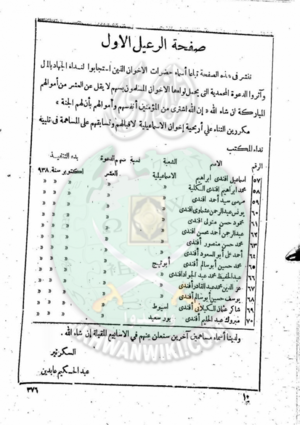 صفحة الرعيل الاول
ننشر فى هذه الصفحة تباعا أسماء حضرات الاخوان الذين استجابوا لنداء الجهاد بالمال
وآثروا الدعوة المحمدية التى يحمل لواءها الاخوان المسلمون بسهم لا يقل عن العشر من أموالهم
المباركة ان شاء الله « إن الله اشترى من المؤمنين أنفسهم وأموالهم بأن لهم الجنة »
مكررين الثناء على أريحية إخوان الاسماعيلية لاقبالهم وتسابقهم على المساهمة فى تلبية
نداء المكتب
الرقم الاسم الشعبة نسبة سهم الدعوة بدء التنفيذ
٥٧ اسماعيل افندى ابراهيم الاسماعيلية العشر اكتوبر سنة ٩٣٨
٥٨ محمد ابراهيم افندى » » »
٥٩ مرسى سيد أحمد افندى » » »
٦٠ يونس عبد الرحمن افندى » » »
٦١ محمود حسن افندى » » »
٦٢ عبد الرحمن أحمد محسن افندى » » »
٦٣ محمد حسن منصور أفندى » » »
٦٤ أحمد على أبو السعود أفندى » » »
٦٥ محمد حسين أبو سالم أفندى أبو صوير » »
٦٦ عبد الحفيظ محمد عبد الجواد افندى » » »
٦٧ عز الدين محمد عبد القادر أفندى » » »
٦٨ يوسف حسين أبو سالم افندى » » »
٦٩ شاكر افندى أسيوط » »
٧٠ مبروك عبد الحليم أفندى بور سعيد » »
ولدينا أسماء مساهمين آخرين سنعلن عنهم فى الاسابيع المقبلة إن شاء الله .
السكرتير
عبد الحكيم عابدين
١٠
٣٧٦